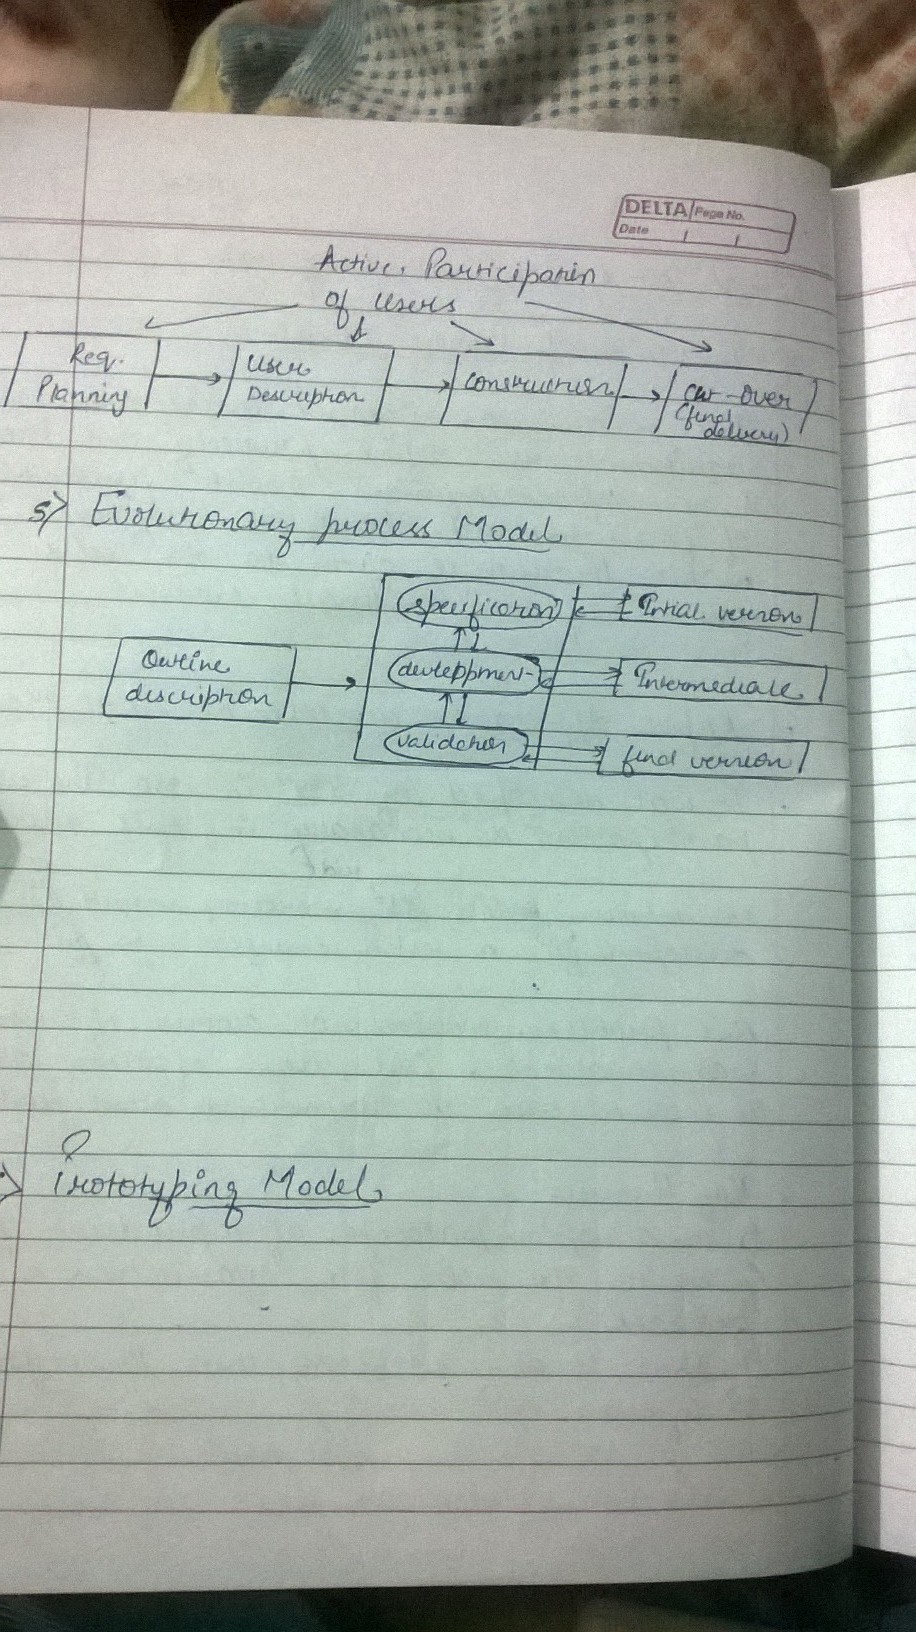 DELTA Page No.
Date / /
Active Participation
of users
Req.
Planning
User
Description
Construction
Cut-Over
(final
delivery)
5) Evolutionary process Model
Outline
description
specification
development
validation
Intial version
Intermediate
final version
Prototyping Model